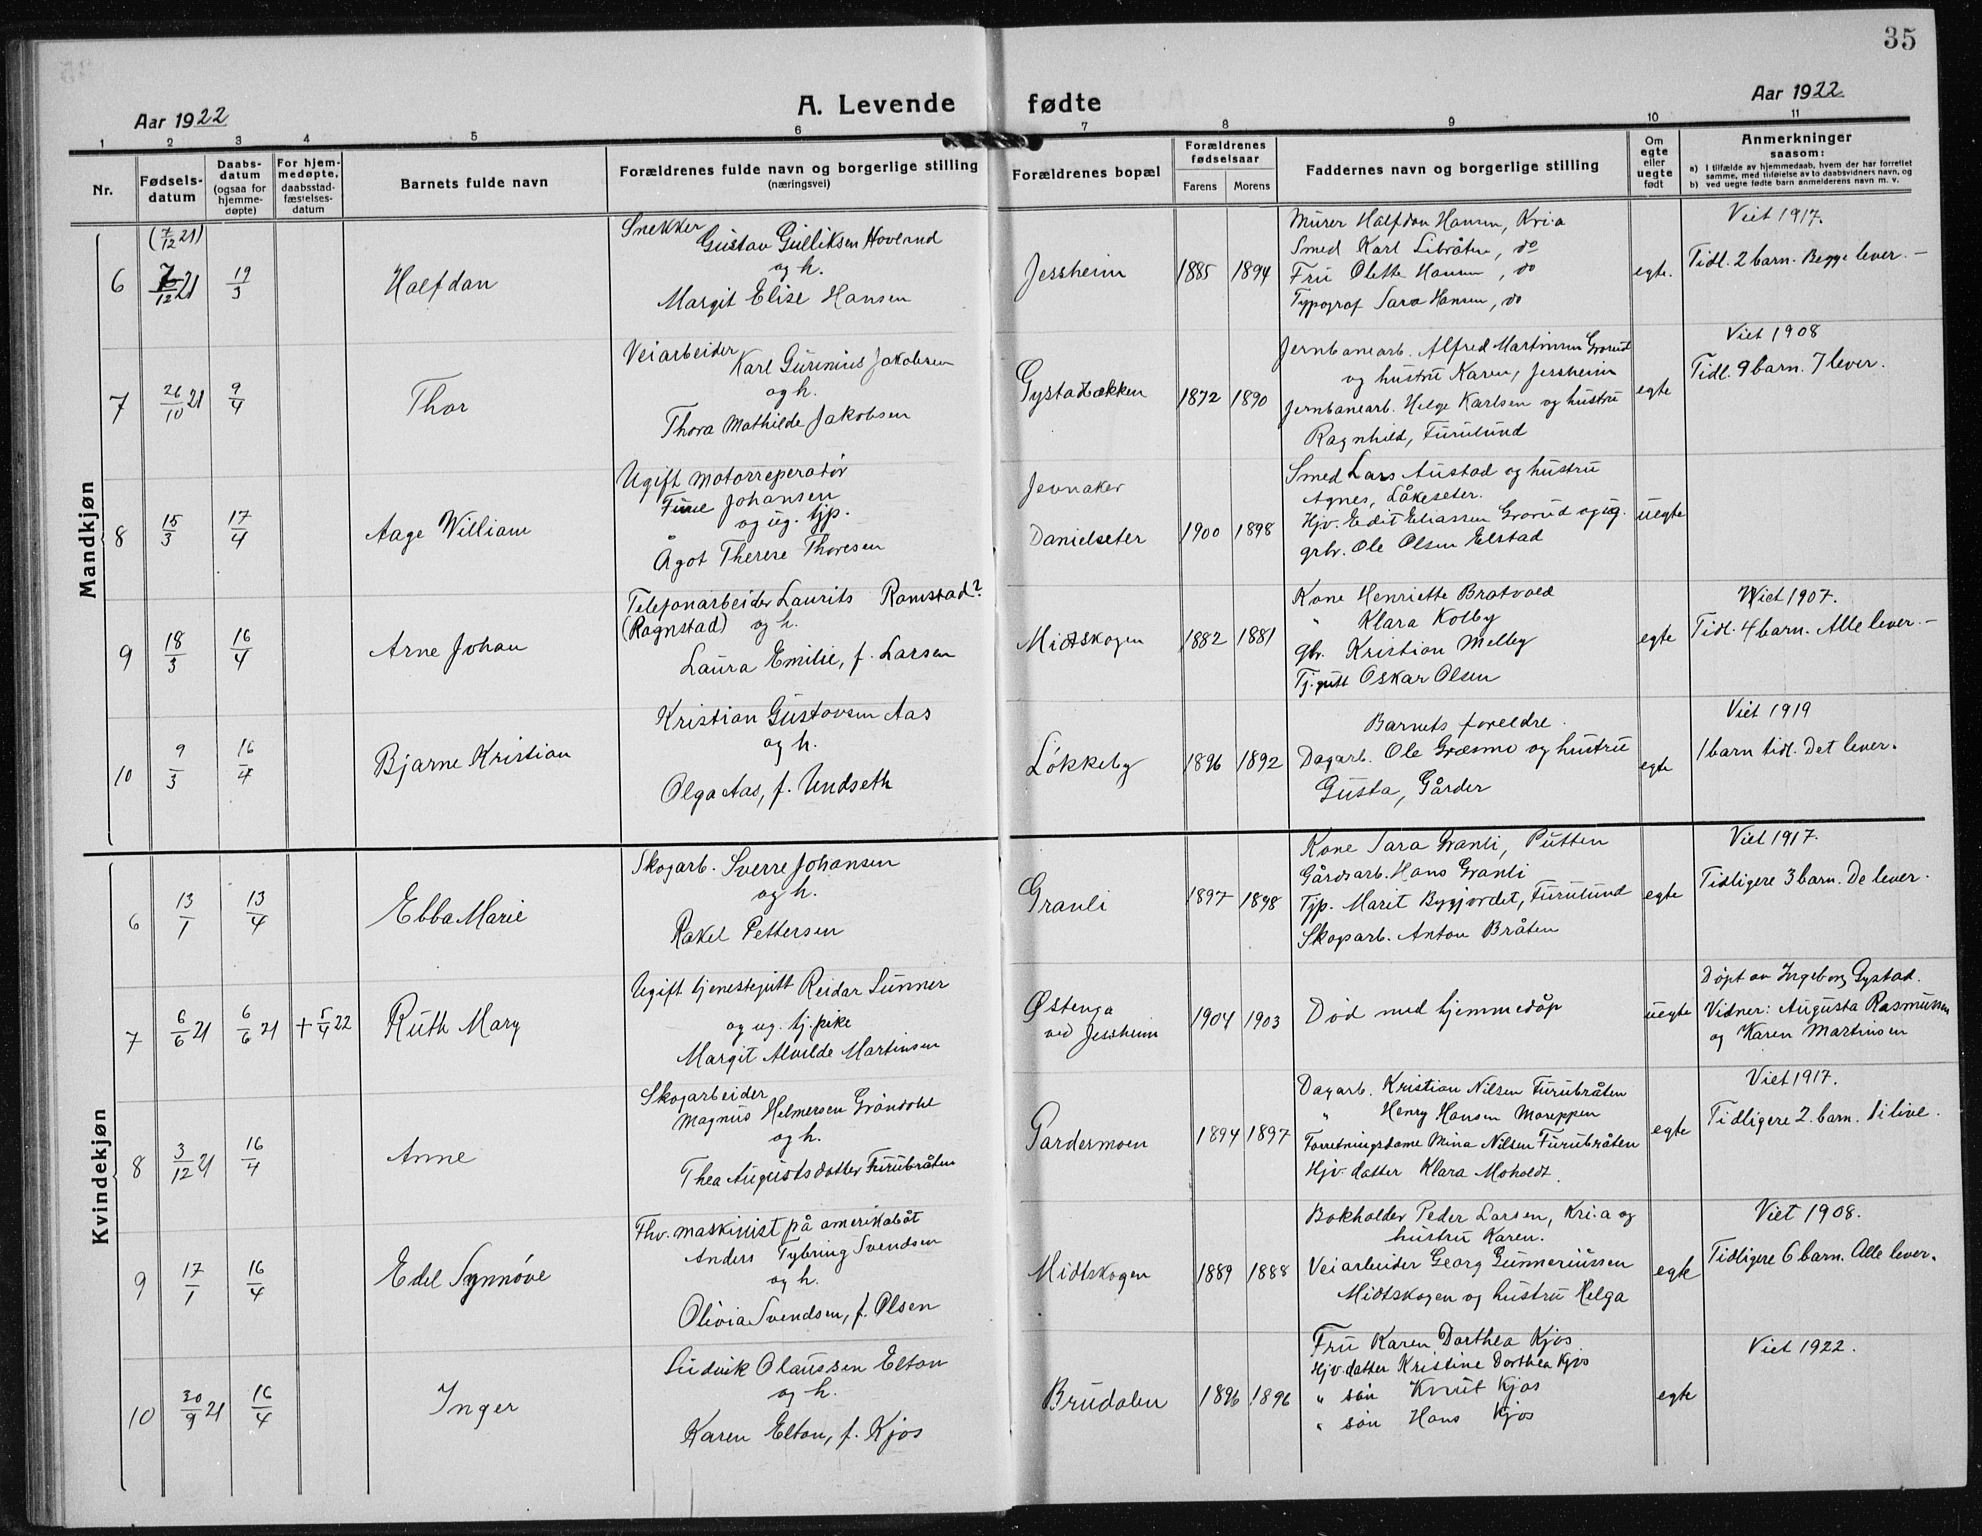 35
Aar 1922
A. Levende fødte
Aar 1922
1 2 3 4 5 6 7 8 9 10 11
Nr.
Fødsels-
datum
Daabs-
datum
(ogsaa for
hjemme-
døpte)
For hjem-
medøpte,
daabsstad-
fæstelses-
datum
Barnets fulde navn
Forældrenes fulde navn og borgerlige stilling
(næringsvei)
Forældrenes bopæl
Forældrenes
fødselsaar
Farens Morens
Faddernes navn og borgerlige stilling
Om
egte
eller
uegte
født
Anmerkninger
saasom:
a) I tilfælde av hjemmedaab, hvem der har forrettet
samme, med tilføielse av to daabsvidners navn, og
b) ved uegte fødte barn anmelderens navn m. v.
Mandkjøn
6
(7/12 21)
7/12 21
19/3
Halfdan
Snekker
Gustav Gulliksen Hovland
og h.
Margit Elise Hansen
Jessheim
1885 1894
Murer Halfdan Hansen, Kria
Smed Karl Libråten, do
Fru Olette Hansen, do
Typograf Sara Hansen, do
egte.
Viet 1917.
Tidl. 2 barn. Begge lever. –
7
26/10 21
9/4
Thor
Veiarbeider
Karl Gurinius Jakobsen
og h.
Thora Mathilde Jakobsen
Gystadbækken
1872 1890
Jernbanearb. Alfred Martinsen Grorud
og hustru Karen, Jessheim
Jernbanearb. Helge Karlsen og hustru
Ragnhild, Furulund
egte
Viet 1908
Tidl. 9 barn. 7 lever.
8
15/3
17/4
Aage William
Ugift motorreperatør
Johansen
og ug. tjp.
Ågot Therese Thoresen
Jevnaker
Danielseter
1900 1898
Smed Lars Austad og hustru
Agnes, Låkeseter.
Hjv. Edit Eliassen Grorud og ug.
grbr. Ole Olsen Elstad
uegte
9
18/3
16/4
Arne Johan
Telefonarbeider Laurits Ramstad?
(Ragnstad) og h.
Laura Emilie, f. Larsen
Midtskogen
1882 1881
Kone Henriette Bratvold
" Klara Kolby
gbr. Kristian Melby
Tj.gutt Oskar Olsen
egte
Viet 1907.
Tidl. 4 barn. Alle lever. –
10
9/3
16/4
Bjarne Kristian
Kristian Gustavsen Aas
og h.
Olga Aas, f. Undseth
Løkkeby
1896 1892
Barnets foreldre.
Dagarb. Ole Græsmo og hustru
Gusta, Gårder
egte
Viet 1919
1 barn tidl. Det lever.
Kvindekjøn
6
13/1
13/4
Ebba Marie
Skogarb. Sverre Johansen
og h.
Rakel Pettersen
Granli
1897 1898
Kone Sara Granli, Putten
Gårdsarb. Hans Granli
Tjp. Marit Bygjordet, Furulund
Skogarb. Anton Bråten
egte
Viet 1917.
Tidligere 3 barn. De lever.
7
6/6 21
6/6 21
+ 5/4 22
Ruth Mary
Ugift tjenestegutt Reidar Sunner
og ug. tj.pike
Margit Alvilde Martinsen
Østenga
ved Jessheim
1904 1903
Død med hjemmedåp
uegte
Døpt av Ingeborg Gystad.
Vidner: Augusta Rasmussen
og Karen Martinsen
8
3/12 21
16/4
Anne
Skogarbeider
Magnus Helmersen Grøndahl
og h.
Thea Augustsdatter Furubråten
Gardermoen
1894 1897
Dagarb. Kristian Nilsen Furubråten
" Henry Hansen Moreppen
Forretningsdame Mina Nilsen Furubråten
Hjv. datter Klara Moholdt.
egte
Viet 1917.
Tidligere 2 barn. 1 i live.
9
17/1
16/4
Edel Synnøve
Fhv. maskinist på amerikabåt
Anders Tybring Svendsen
og h.
Olivia Svendsen, f. Olsen
Midtskogen
1889 1888
Bokholder Peder Larsen, Kria og
hustru Karen.
Veiarbeider Georg Gunneriussen
Midtskogen og hustru Helga
egte
Viet 1908.
Tidligere 6 barn. Alle lever.
10
20/9 21
16/4
Inger
Ludvik Olaussen Elton
og h.
Karen Elton, f. Kjos
Brudalen
1896 1896
Fru Karen Dorthea Kjos
Hjv. datter Kristine Dorthea Kjos
" søn Knut Kjos
" søn Hans Kjos
egte
Viet 1922.